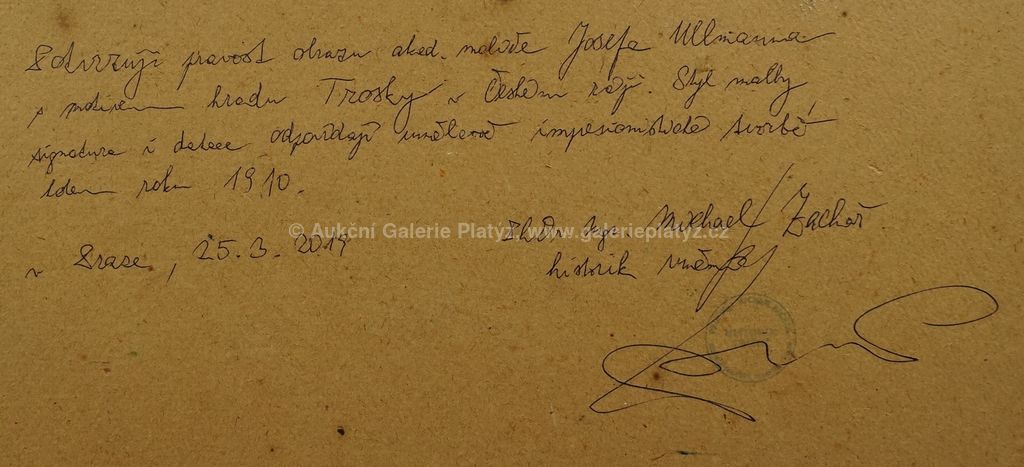 Potvrzuji pravost obrazu akad. malíře Josefa Ullmanna
s motivem hradu Trosky v Českém ráji. Styl malby
signatura i datace odpovídají umělcově impresionistické tvorbě
kolem roku 1910.
© Aukční Galerie Platýz, www.galerieplatyz.cz
PhDr. Michael Zachař
v Praze, 25.3.2019
historik umění